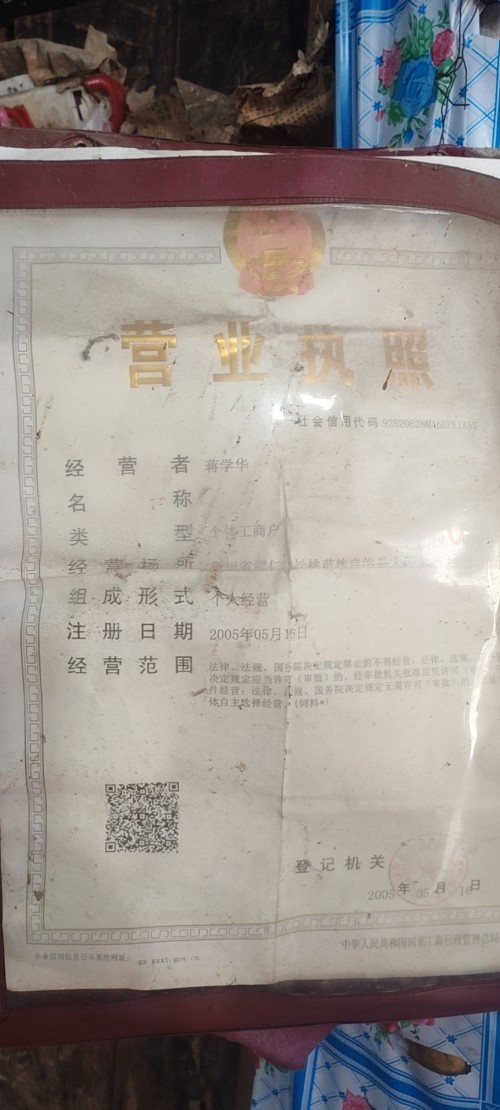 营业执照
社会信用代码 92520628MA6EFK1A5S
经营者 蒋学华
名称
类型 个体工商户
经营场所 贵州省铜仁市松桃苗族自治县
组成形式 个人经营
注册日期 2005年05月16日
经营范围 法律、法规、国务院决定规定禁止的不得经营；法律、法规、
决定规定应当许可（审批）的，经审批机关批准后凭许可（
件经营；法律、法规、国务院决定规定无需许可（审批）的，
体自主选择经营。（饲料*）
登记机关
2005年 05月 16日
企业信用信息公示系统网址：gz.gsxt.gov.cn
中华人民共和国国家工商行政管理总局